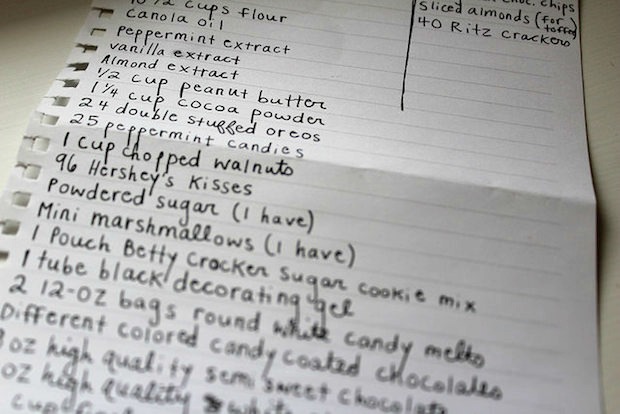 10 1/2 cups flour
Canola oil
Peppermint extract
vanilla extract
Almond extract
1/2 cup peanut butter
1 1/4 cup cocoa powder
24 double stuffed oreos
25 peppermint candies
1 cup chopped walnuts
96 Hershey's Kisses
Powdered sugar (I have)
Mini marshmallows (I have)
1 Pouch Betty Crocker sugar cookie mix
1 tube black decorating gel
2 12-oz bags round white candy melts
Different colored candy coated chocolates
oz high quality semi sweet chocolate
oz high quality white
cup
choc. chips
sliced almonds (for toffee)
40 Ritz crackers